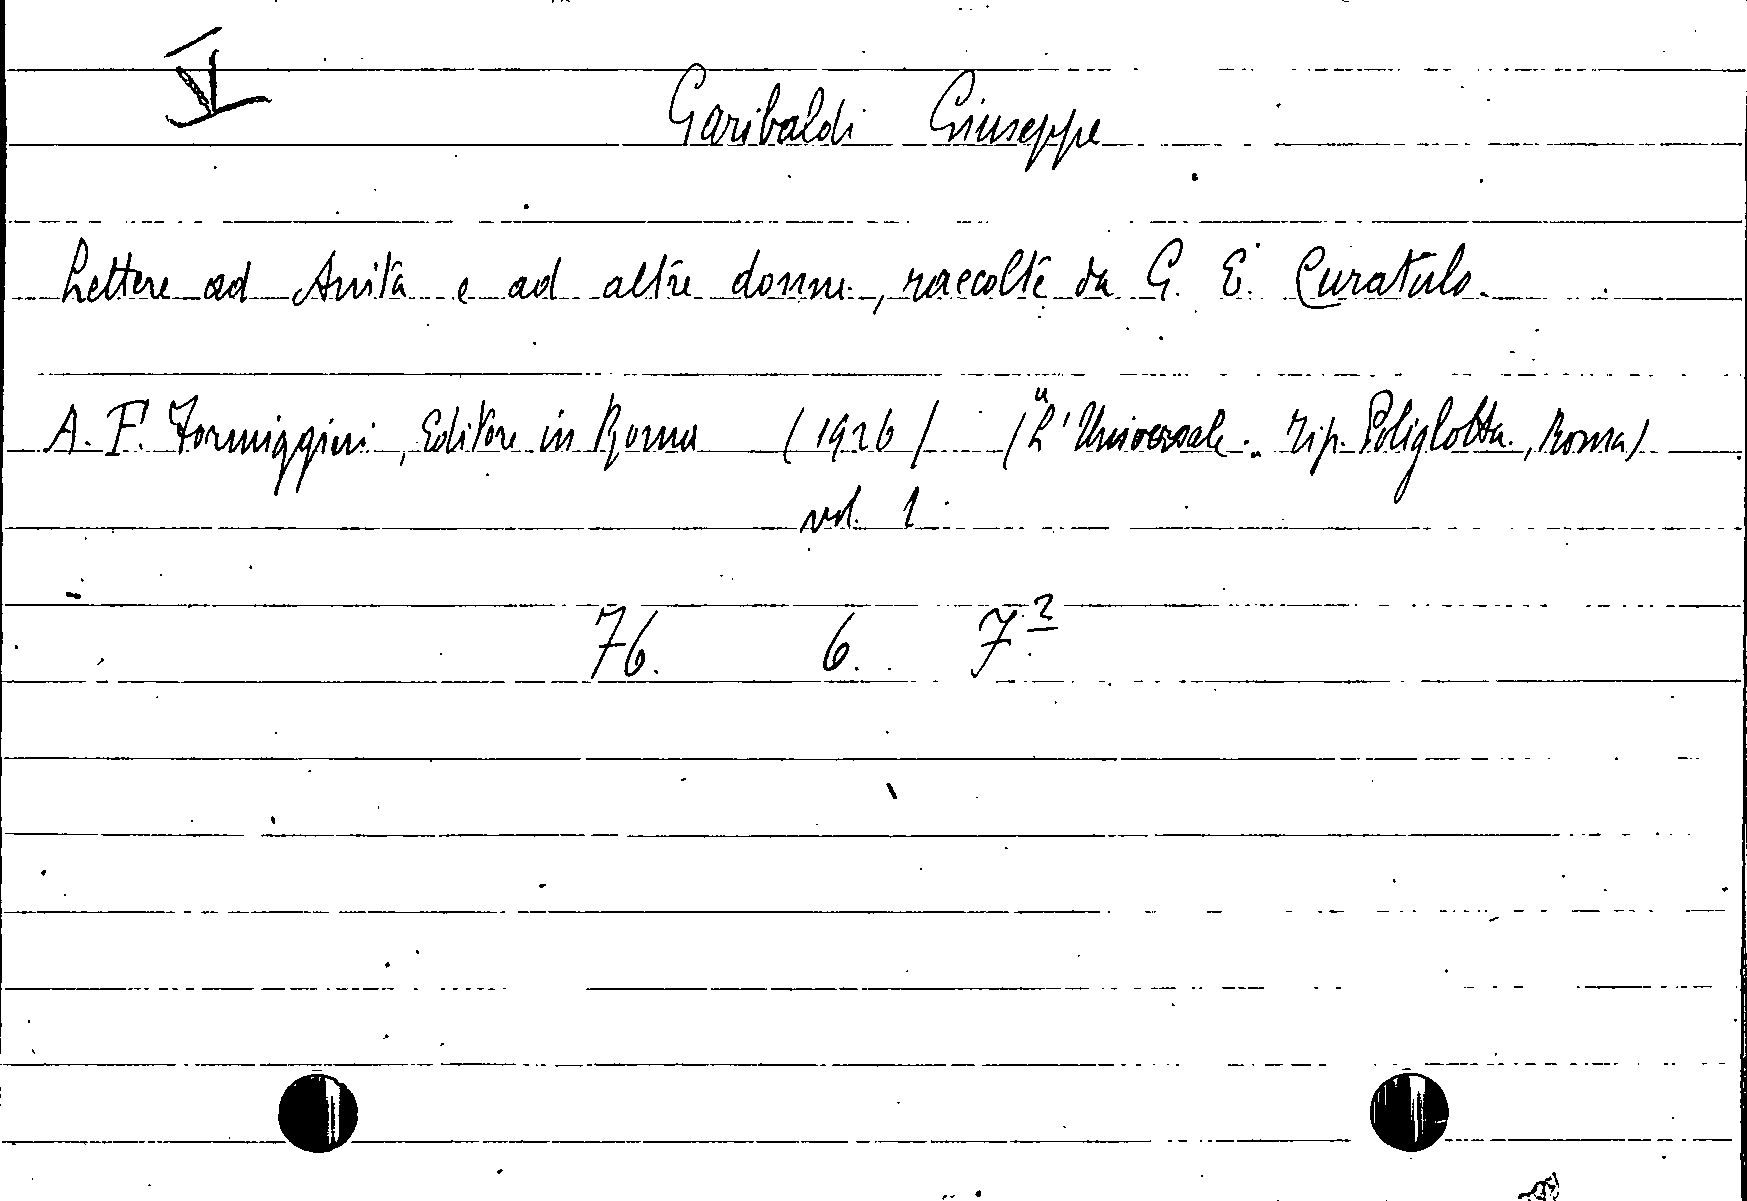 V
Garibaldi Giuseppe
Lettere ad Anita e ad altre donne, raccolte da G. E. Curatulo.
A. F. Formiggini, Editore in Roma (1926) (L'Universale. Tip. Poliglotta, Roma)
vol. 1
76. 6. 7²